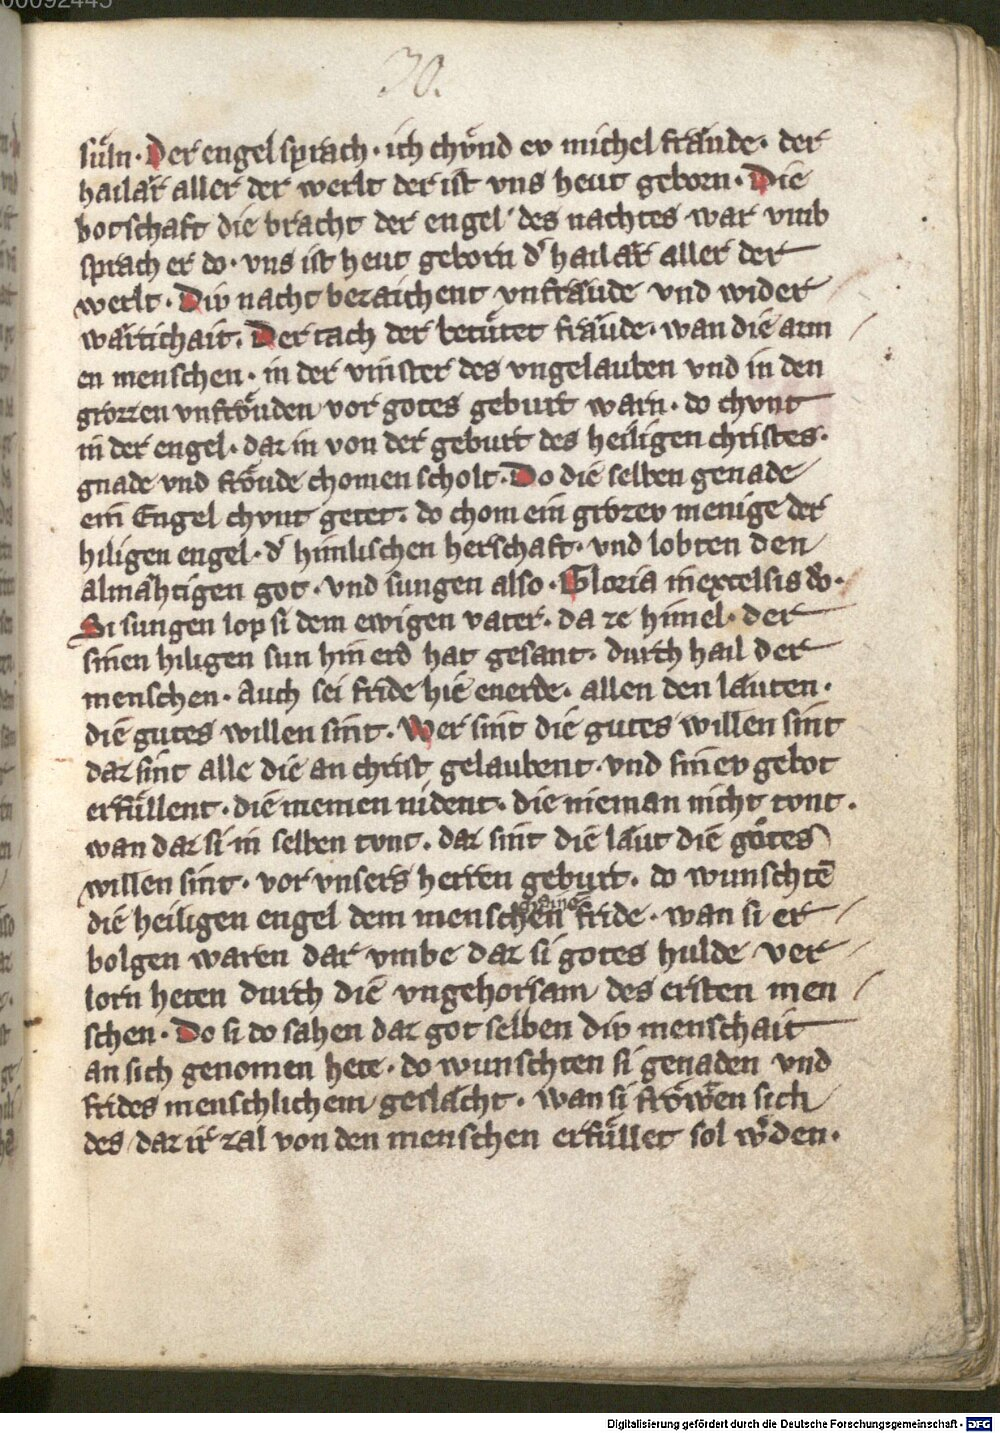 30.
süln. Der engel sprach. ich chv̂nd ev michel fräude. der
hailär aller der werlt der ist vns heut geborn. Die
botschaft die bracht der engel des nachtes war vmb
sprach er do. vns ist heut geborn d' hailär aller der
werlt. Div nacht bezaichent vnfräude vnd wider
wärtichait. Der tach der betütet fräude. wan die arm
en menschen. in der vinster des vngelauben vnd in den
grozzen vnfröuden vor gotes geburt warn. do chvnt
in der engel. daz in von der geburt des heiligen christes.
gnade vnd fröude chomen scholt. Do die selben genade
ein Engel chvnt getet. do chom ein grozev menige der
hiligen engel. d' himlischen herschaft. vnd lobten den
almähtigen got. vnd sungen also. Gloria in excelsis do.
Si sungen lop si dem ewigen vater. da ze himel. der
sinen hiligen sun hin erd hat gesant. durch hail der
menschen. Auch sei fride hie enerde. allen den läuten.
die gutes willen sint. Wer sint die gutes willen sint
daz sint alle die an christ gelaubent. vnd sinev gebot
erfüllent. die niemen nident. die nieman nicht tvnt.
wan daz si in selben tvnt. daz sint die läut die gotes
willen sint. vor vnsers herren geburt. do wunschtē
die heiligen engel dem menschen fride. wan si er
bolgen waren dar vmbe daz si gotes hulde ver
lorn heten durch die vngehorsam des ersten men
schen. Do si do sahen daz got selben div menschait
an sich genomen hete. do wunschten si genaden vnd
frides menschlichem geslächt. wan si fröwen sich
des daz ir zal von den menschen erfüllet sol w'den.
Digitalisierung gefördert durch die Deutsche Forschungsgemeinschaft - DFG